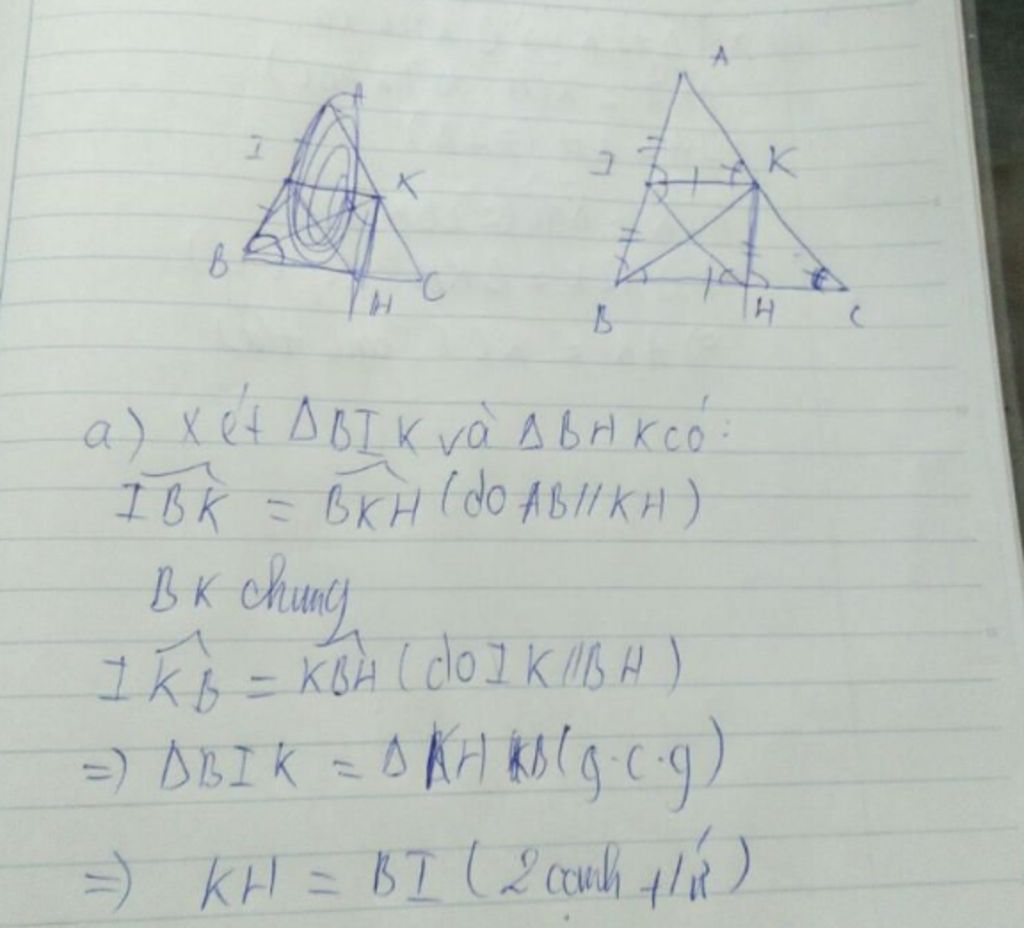 A
I
K
B
H
C
A
I
K
B
H
C
a) Xét ΔBIK và ΔBHK có:
IBK = BKH (do AB//KH)
BK chung
IKB = KBH (do IK//BH)
=) ΔBIK = ΔKHB (g.c.g)
=) KH = BI (2 cạnh t/ứ)